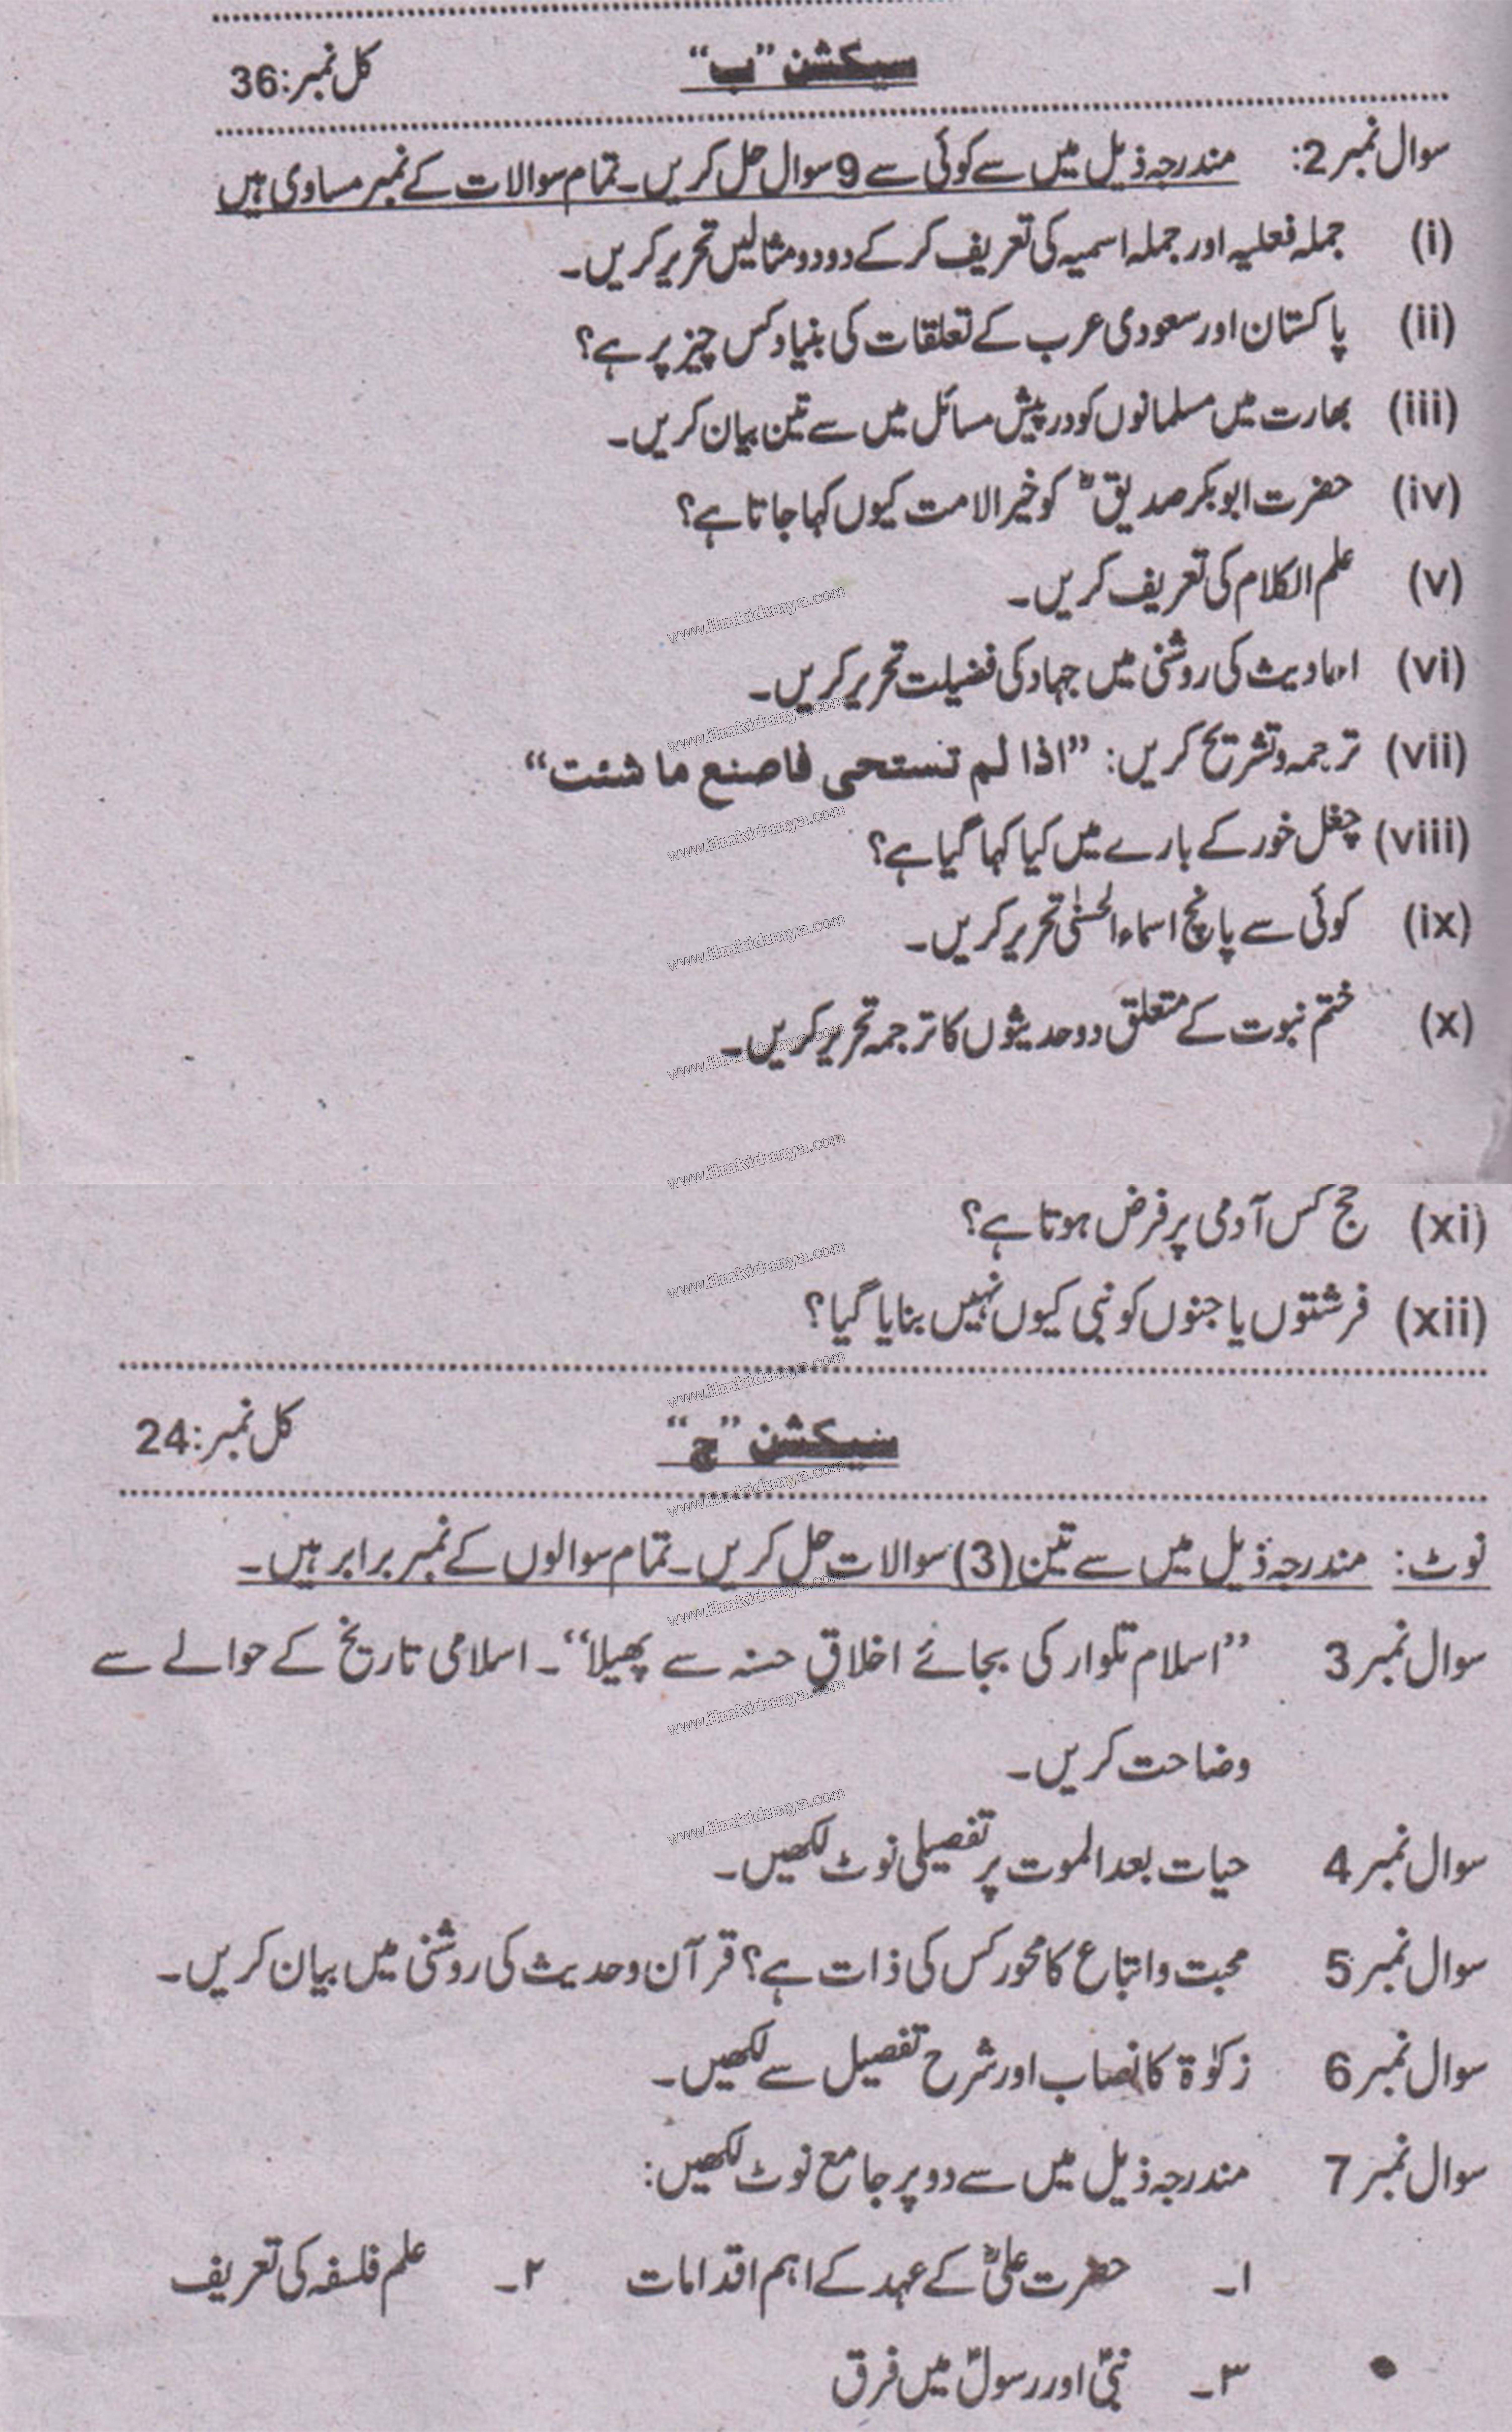 سیکشن ”ب“ کل نمبر:36
سوال نمبر 2: مندرجہ ذیل میں سے کوئی سے 9 سوال حل کریں۔ تمام سوالات کے نمبر مساوی ہیں
(i) جملہ فعلیہ اور جملہ اسمیہ کی تعریف کر کے دو دو مثالیں تحریر کریں۔
(ii) پاکستان اور سعودی عرب کے تعلقات کی بنیاد کس چیز پر ہے؟
(iii) بھارت میں مسلمانوں کو درپیش مسائل میں سے تین بیان کریں۔
(iv) حضرت ابوبکر صدیقؓ کو خیر الامت کیوں کہا جاتا ہے؟
(v) علم الکلام کی تعریف کریں۔
(vi) احادیث کی روشنی میں جہاد کی فضیلت تحریر کریں۔
(vii) ترجمہ و تشریح کریں: ”اذا لم تستحی فاصنع ما شئت“
(viii) چغل خور کے بارے میں کیا کہا گیا ہے؟
(ix) کوئی سے پانچ اسماء الحسنٰی تحریر کریں۔
(x) ختم نبوت کے متعلق دو حدیثوں کا ترجمہ تحریر کریں۔
(xi) حج کس آدمی پر فرض ہوتا ہے؟
(xii) فرشتوں یا جنوں کو نبی کیوں نہیں بنایا گیا؟
سیکشن ”ج“ کل نمبر:24
نوٹ: مندرجہ ذیل میں سے تین (3) سوالات حل کریں۔ تمام سوالوں کے نمبر برابر ہیں۔
سوال نمبر 3 ”اسلام تلوار کی بجائے اخلاقِ حسنہ سے پھیلا“۔ اسلامی تاریخ کے حوالے سے
وضاحت کریں۔
سوال نمبر 4 حیات بعد الموت پر تفصیلی نوٹ لکھیں۔
سوال نمبر 5 محبت و اتباع کا محور کس کی ذات ہے؟ قرآن و حدیث کی روشنی میں بیان کریں۔
سوال نمبر 6 زکوٰۃ کا نصاب اور شرح تفصیل سے لکھیں۔
سوال نمبر 7 مندرجہ ذیل میں سے دو پر جامع نوٹ لکھیں:
۱۔ حضرت علیؓ کے عہد کے اہم اقدامات ۲۔ علم فلسفہ کی تعریف
۳۔ نبیؐ اور رسولؐ میں فرق
www.ilmkidunya.com
www.ilmkidunya.com
www.ilmkidunya.com
www.ilmkidunya.com
www.ilmkidunya.com
www.ilmkidunya.com
www.ilmkidunya.com
www.ilmkidunya.com
www.ilmkidunya.com
www.ilmkidunya.com
www.ilmkidunya.com
www.ilmkidunya.com